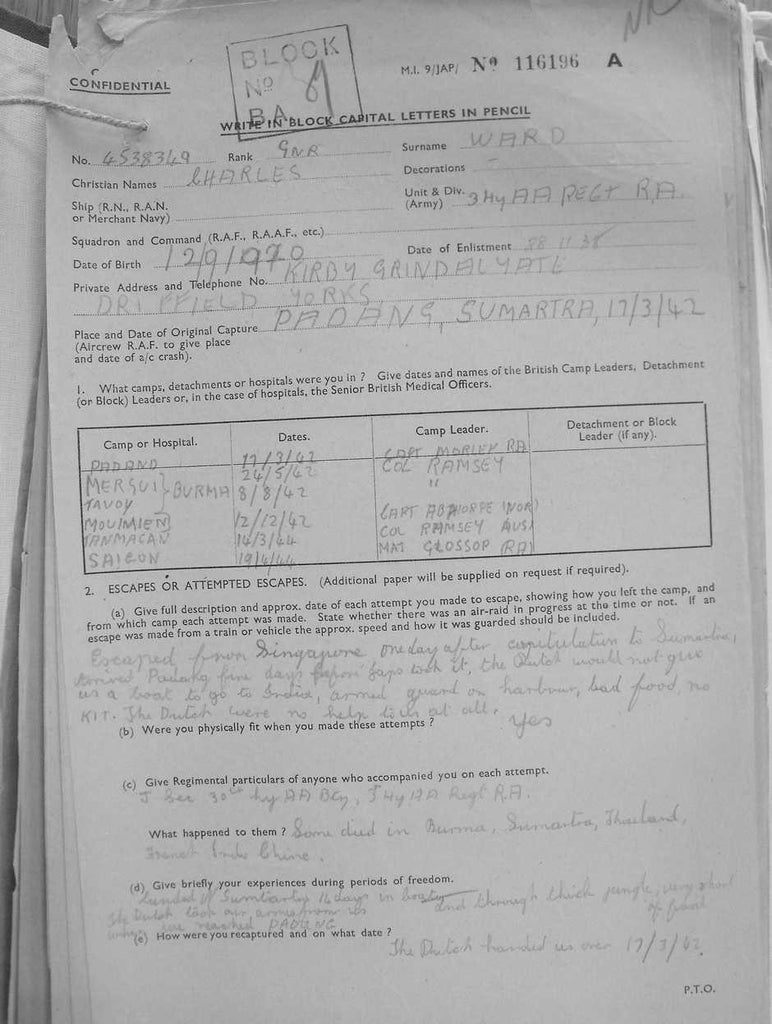 NR
BLOCK
Nº
BA
CONFIDENTIAL
M.I. 9/JAP/ Nº 116196 A
WRITE IN BLOCK CAPITAL LETTERS IN PENCIL
No. 4538349 Rank GNR Surname WARD
Christian Names CHARLES Decorations -
Ship (R.N., R.A.N. or Merchant Navy) Unit & Div. (Army) 3 Hy AA REGT R.A.
Squadron and Command (R.A.F., R.A.A.F., etc.)
Date of Birth 12/9/1920 Date of Enlistment 28 11 38
Private Address and Telephone No. KIRBY GRINDALYATE
DRIFFIELD YORKS
Place and Date of Original Capture PADANG, SUMARTRA, 17/3/42
(Aircrew R.A.F. to give place
and date of a/c crash).
1. What camps, detachments or hospitals were you in ? Give dates and names of the British Camp Leaders, Detachment
(or Block) Leaders or, in the case of hospitals, the Senior British Medical Officers.
Camp or Hospital. Dates. Camp Leader. Detachment or Block Leader (if any).
PADANG 17/3/42 CAPT MORLEY RA
MERGUI } BURMA 24/5/42 COL RAMSEY
TAVOY 8/8/42 "
MOULMIEN 12/12/42 CAPT
TANMACAN 14/3/44 COL RAMSEY AUS
SAIGON 19/4/44 MAJ GLOSSOP (RA)
2. ESCAPES OR ATTEMPTED ESCAPES. (Additional paper will be supplied on request if required).
(a) Give full description and approx. date of each attempt you made to escape, showing how you left the camp, and
from which camp each attempt was made. State whether there was an air-raid in progress at the time or not. If an
escape was made from a train or vehicle the approx. speed and how it was guarded should be included.
Escaped from Singapore one day after capitulation to Sumartra,
Arrived Padang five days before Japs took it, the Dutch would not give
us a boat to go to India, armed guard on harbour, bad food, no
KIT. The Dutch were no help to us at all.
(b) Were you physically fit when you made these attempts ? yes
(c) Give Regimental particulars of anyone who accompanied you on each attempt.
J Sec 30th Hy AA Bty, 3 Hy AA Regt R.A.
What happened to them ? Some died in Burma, Sumartra, Thailand,
French Indo Chine.
(d) Give briefly your experiences during periods of freedom.
Landed 16 days in and through thick jungle, very short
of food
the Dutch took our arms from us
when we reached PADANG
(e) How were you recaptured and on what date ?
The Dutch handed us over 17/3/42.
P.T.O.